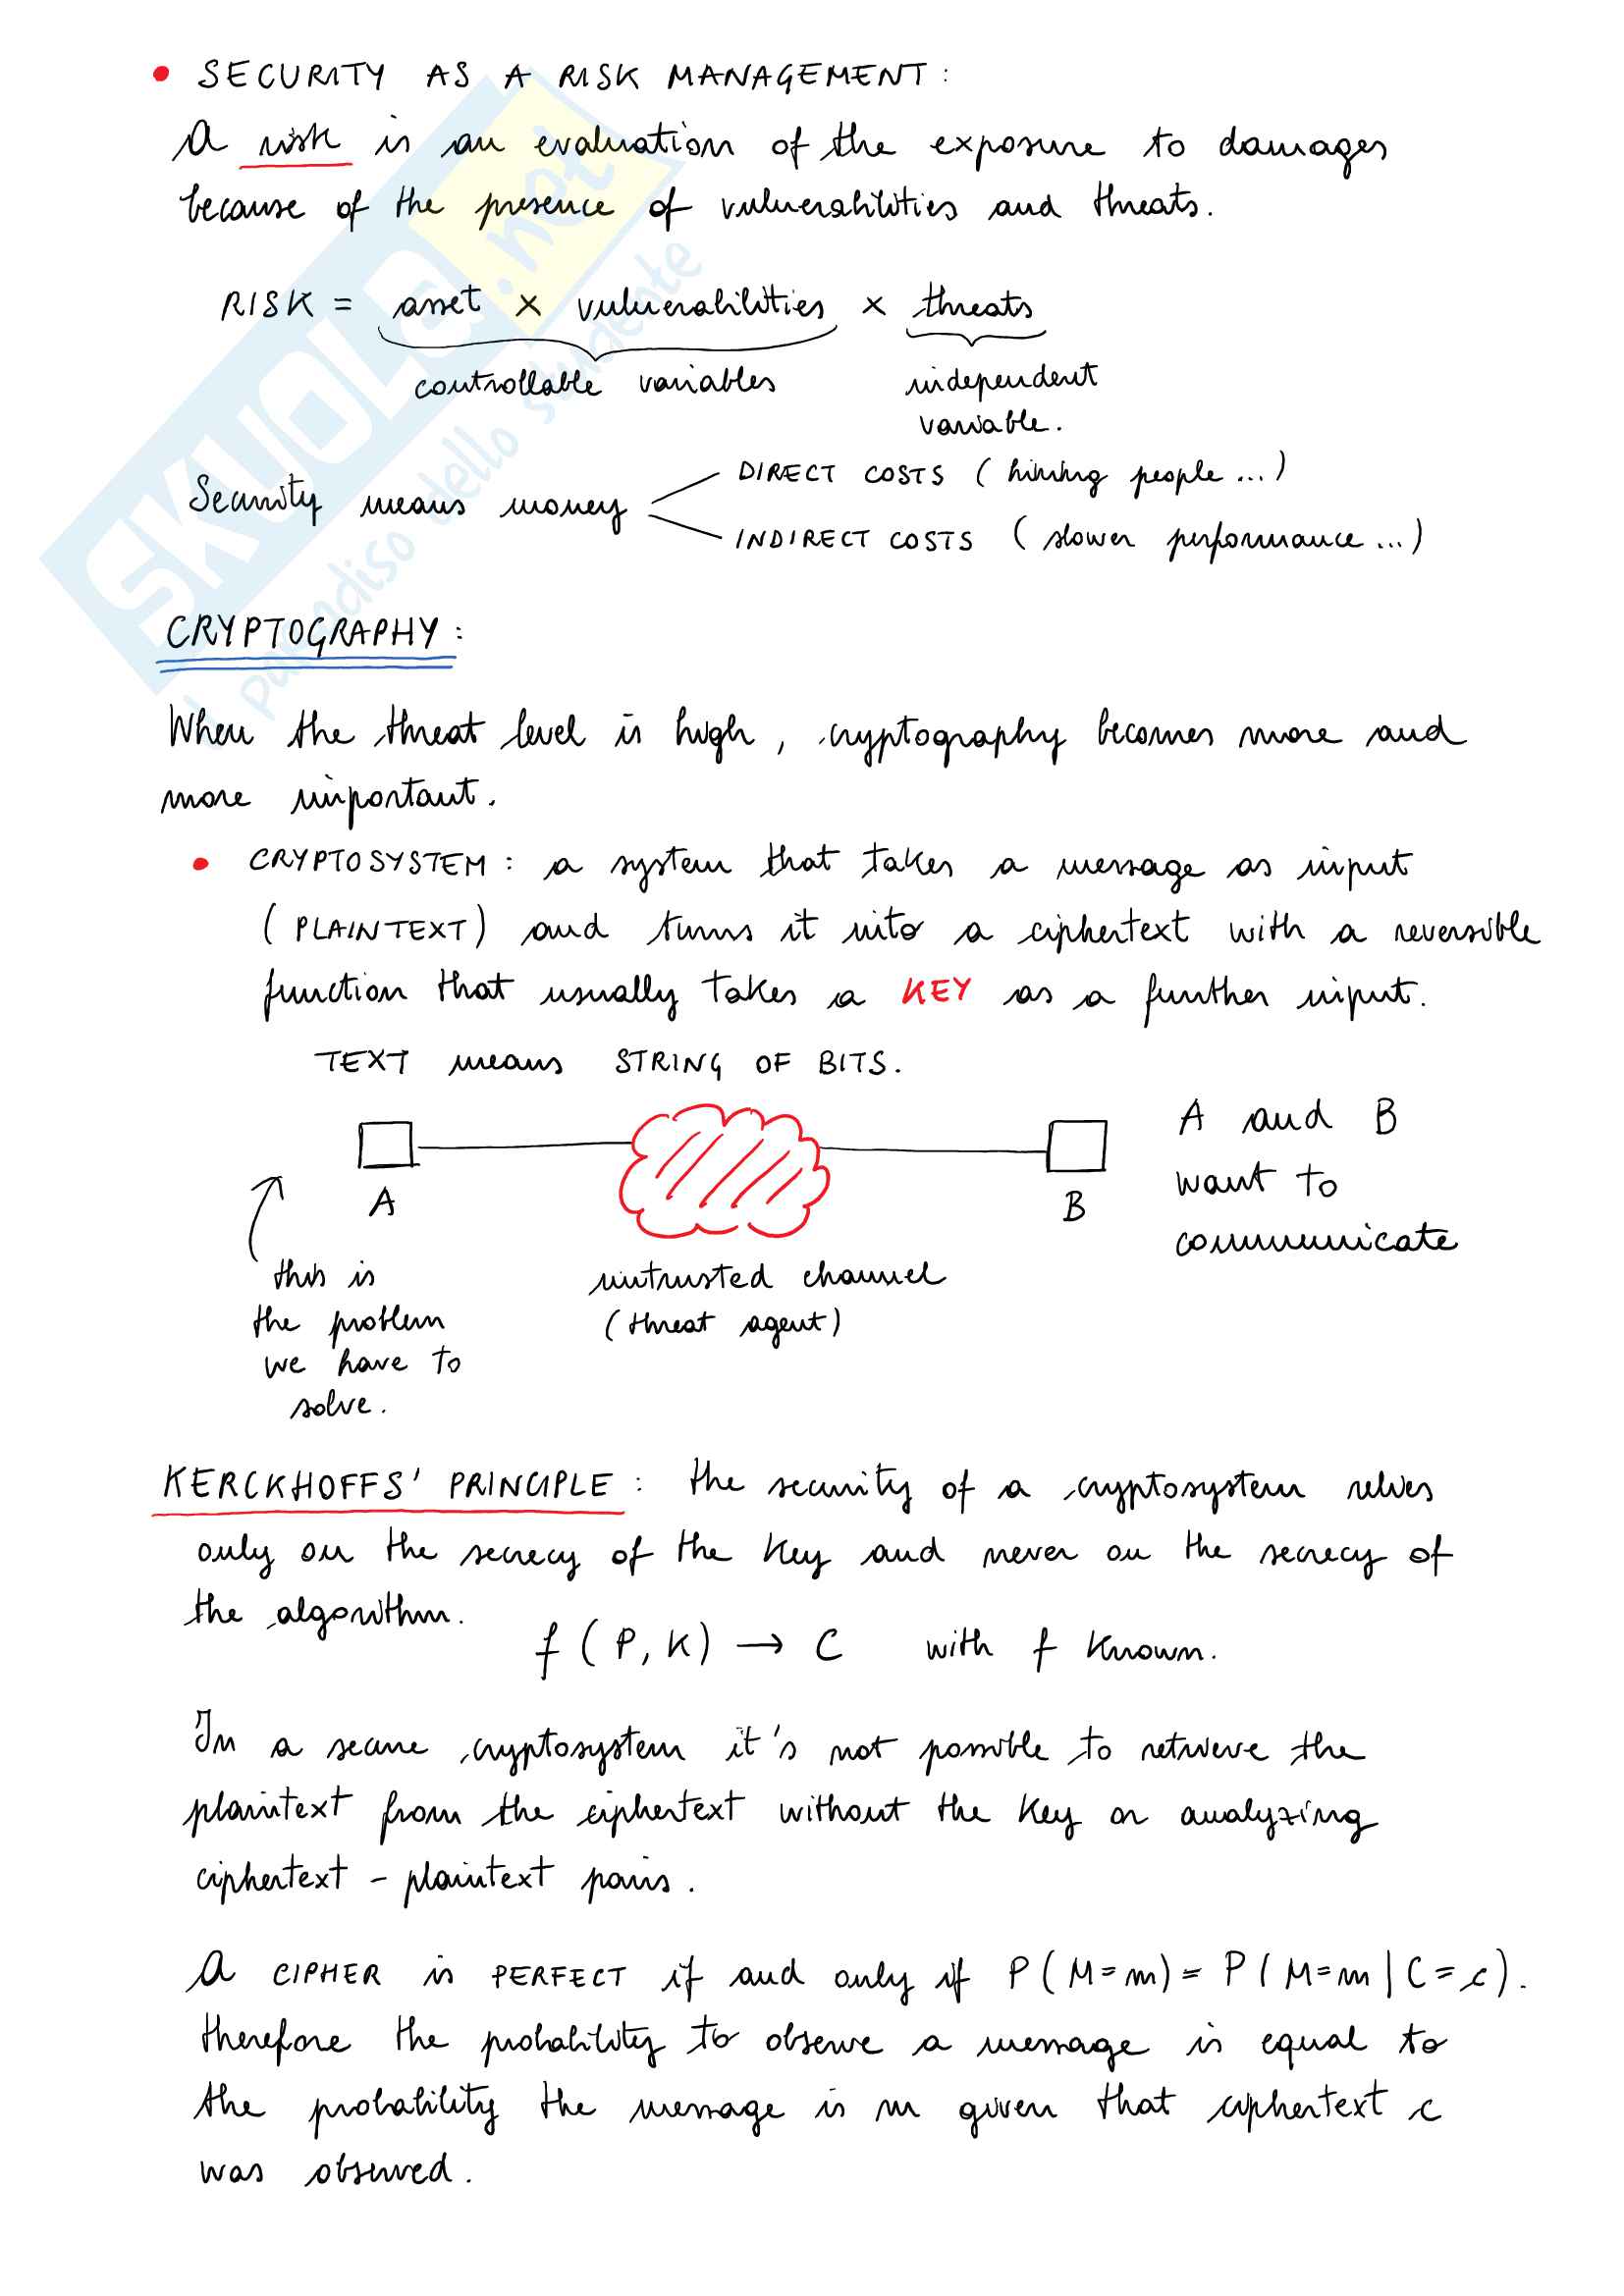 • SECURITY AS A RISK MANAGEMENT:
A risk is an evaluation of the exposure to damages
because of the presence of vulnerabilities and threats.
RISK = asset × vulnerabilities × threats
controllable variables
independent
variable.
Security means money
DIRECT COSTS (hiring people...)
INDIRECT COSTS (slower performance...)
CRYPTOGRAPHY:
When the threat level is high, cryptography becomes more and
more important.
• CRYPTOSYSTEM: a system that takes a message as input
(PLAINTEXT) and turns it into a ciphertext with a reversible
function that usually takes a KEY as a further input.
TEXT means STRING OF BITS.
A
B
A and B
want to
communicate
this is
the problem
we have to
solve.
untrusted channel
(threat agent)
KERCKHOFFS' PRINCIPLE: the security of a cryptosystem relies
only on the secrecy of the key and never on the secrecy of
the algorithm.
f (P, K) → C with f known.
In a secure cryptosystem it's not possible to retrieve the
plaintext from the ciphertext without the key or analyzing
ciphertext - plaintext pairs.
A CIPHER is PERFECT if and only if P(M=m) = P(M=m | C=c).
therefore the probability to observe a message is equal to
the probability the message is m given that ciphertext c
was observed.
SKUOLA.net
il paradiso dello studente